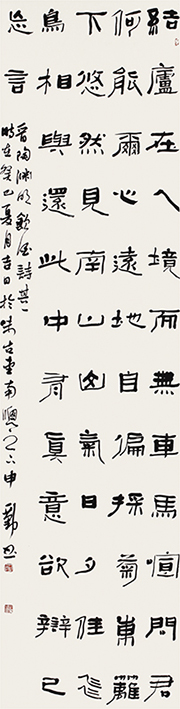 結廬在人境而無車馬喧問君
何能爾心遠地自偏採菊東籬
下悠然見南山山氣日夕佳飛
鳥相與還此中有真意欲辯已
忘言
晉陶淵明飲酒詩其一
時在癸巳夏月吉日於味古堂南